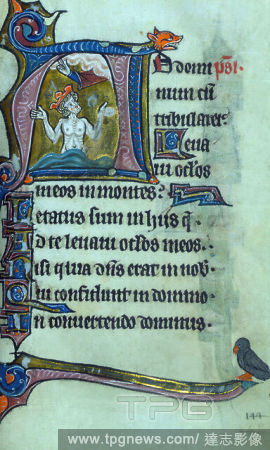 AD domi psl.
num cu
tribularer
Leua
ui oclos
meos in montes?
Letatus sum in hiis q.
Ad te leuaui oclos meos.
Nisi quia dns erat in nob.
Qui confidunt in domino.
In conuertendo dominus.
TPG
144
www.tpgnews.com/ 達志影像